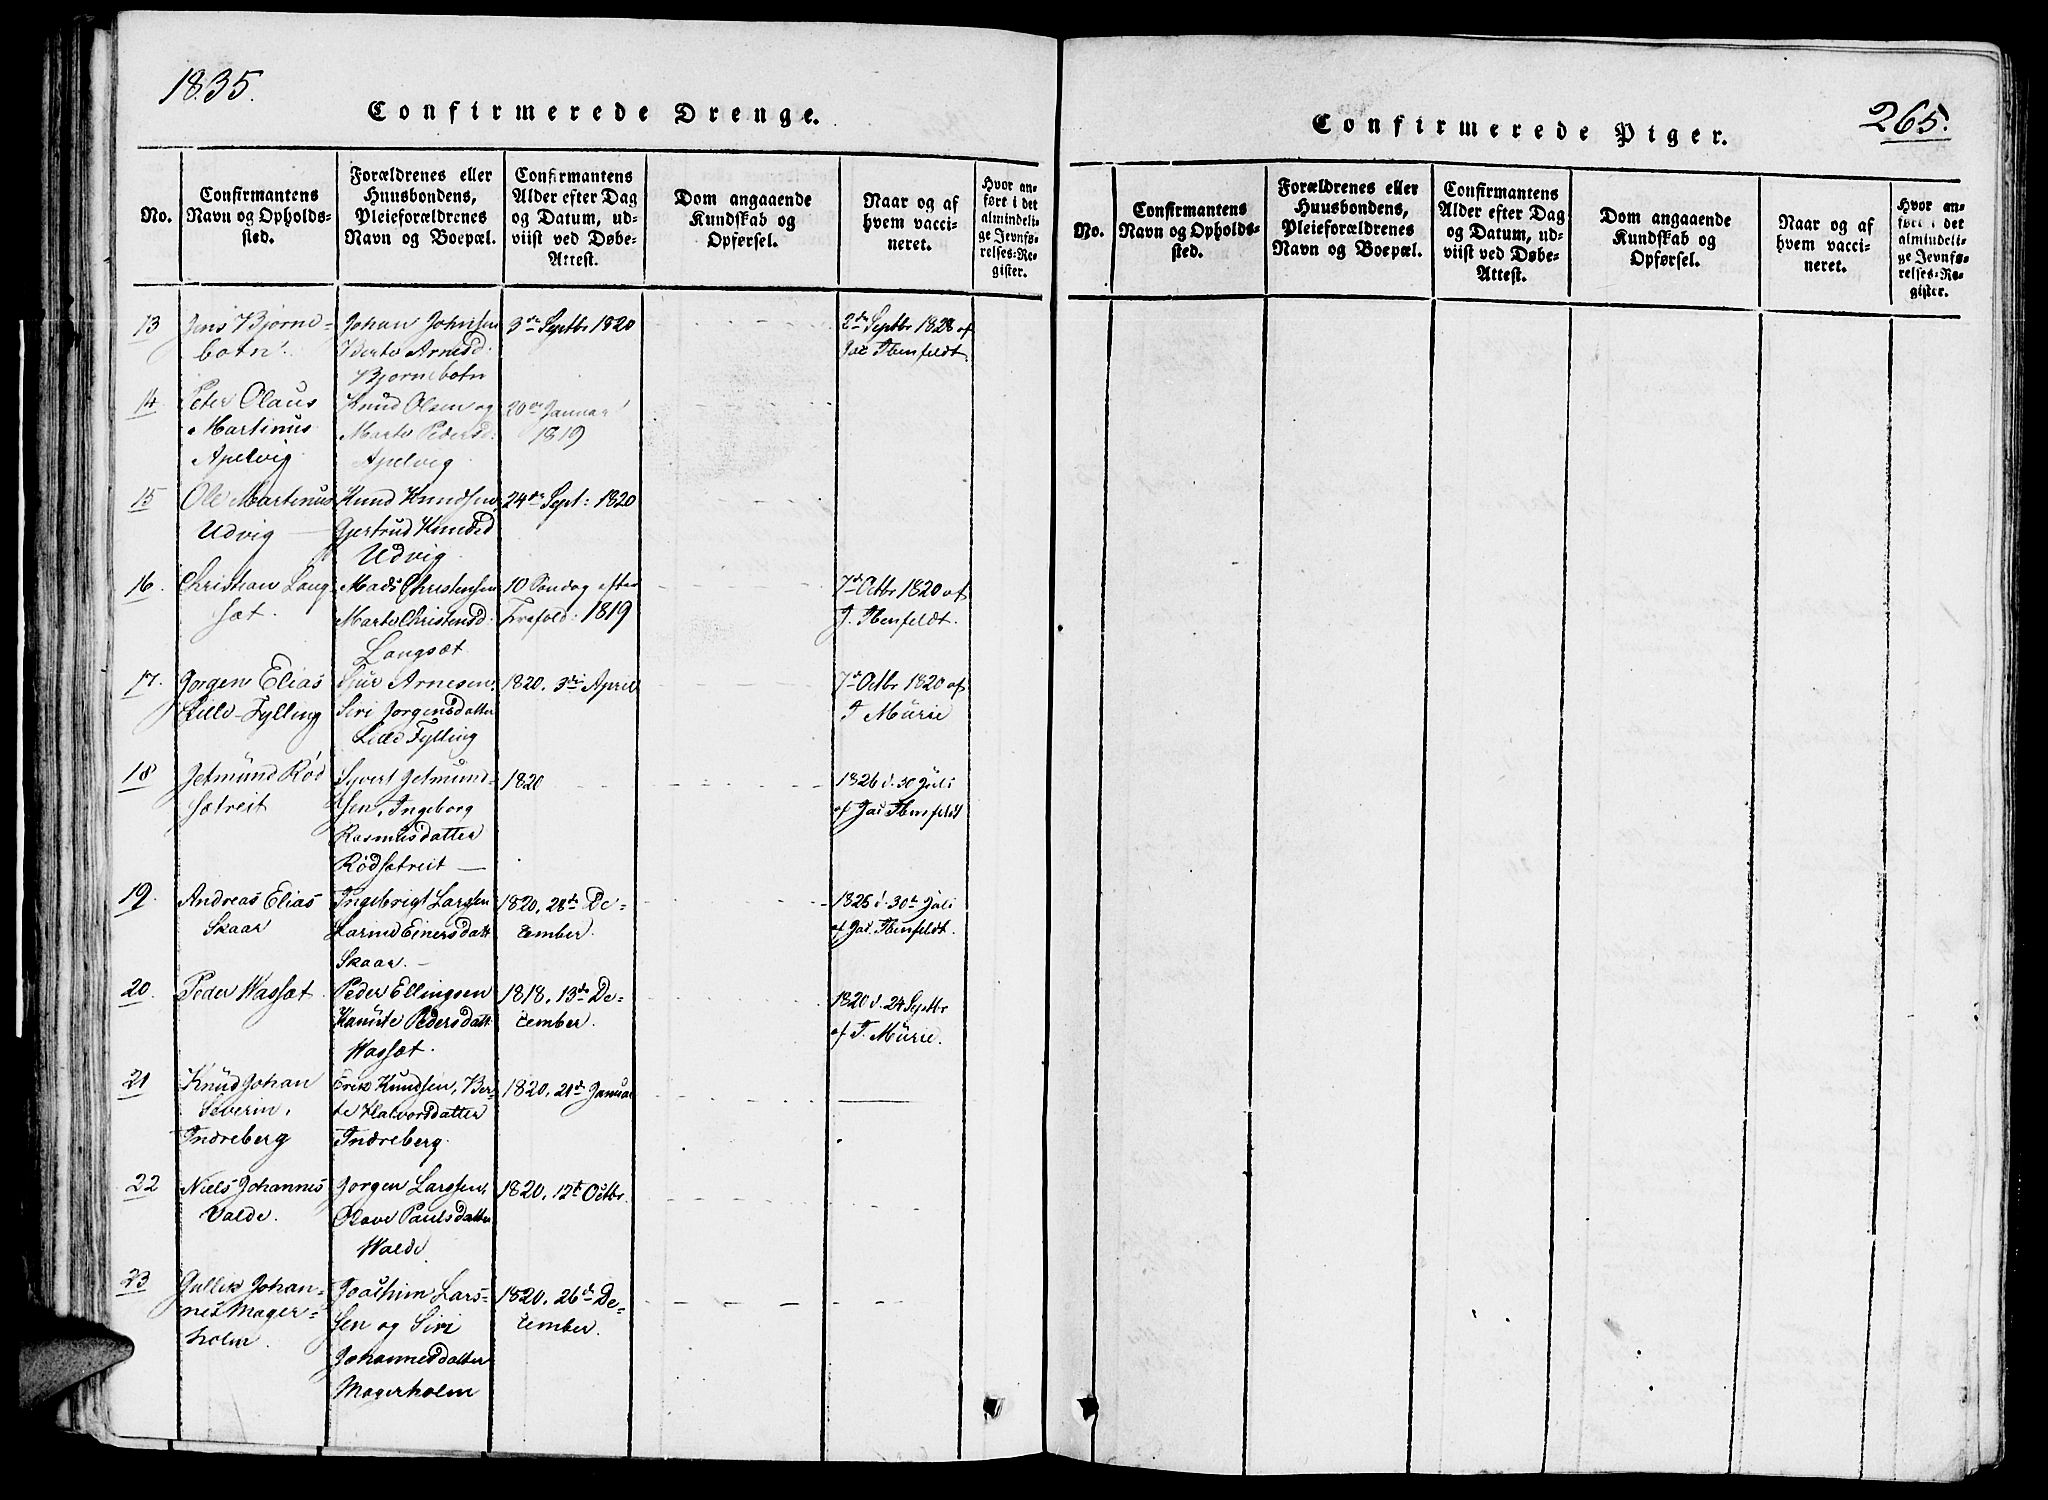 1835.
Confirmerede Drenge.
No.
Confirmantens
Navn og Opholds-
sted.
Forældrenes eller
Huusbondens,
Pleieforældrenes
Navn og Boepæl.
Confirmantens
Alder efter Dag
og Datum, ud-
viist ved Døbe-
Attest.
Dom angaaende
Kundskab og
Opførsel.
Naar og af
hvem vacci-
neret.
Hvor an-
ført i det
almindeli-
ge Jevnfø-
relses-Re-
gister.
13
Jens Bjørne-
botn.
Johan Johnsen
Berte Arnesd.
Bjørnebotn
3de Septbr 1820
2de Septbr 1828 af
Jac Ibenfeldt.
14
Peter Olaus
Martinus
Apelvig
Knud Olsen og
Marte Pedersd:
Apelvig
20de Januar
1819
15
Ole Martinus
Udvig
Knud Knudsen
Gjertrud Knudsd
Udvig
24de Sept: 1820
16.
Christian Lang-
sæt.
Mads Christensen
Marte Christensd.
Langsæt
10 Søndag efter
Trefold: 1819
7de Octbr 1820 af
J. Ibenfeldt.
17.
Jørgen Elias
Lille-Fylling
Siur Arnesen.
Siri Jørgensdatter
Lille Fylling
1820. 3de April
7de Octbr 1820 af
T Mürie
18
Jetmünd Rød
sætreit
Syvert Jetmund-
sen, Ingeborg
Rasmusdatter
Rødsætreit —
1820
1826 d. 30 Juli
af Jac Ibenfeldt
19.
Andreas Elias
Skaar
Ingebrigt Larssen
Karine Einersdatt
Skaar. —
1820. 28de De-
cember.
1826 d. 30te Juli
af Jac. Ibenfeldt.
20.
Peder Wassæt.
Peder Ellingsen
Kanute Pedersdatt
Wassæt.
1818. 13de De-
cember.
1820 d. 24 Septbr
af T. Mürie.
21
Knüd Johan
Severin.
Indreberg
Erik Knudsen, Ber-
te Halvorsdatter
Indreberg.
1820. 21de Januar
22
Niels Johannes
Valde.
Jørgen Larssen,
Olave Paulsdatter
Walde
1820. 12te Octbr.
23
Gullik Johan-
nes Mager-
holm.
Joachim Lars-
sen og Siri
Johannesdatter
Magerholm
1820. 26de De-
cember.
265.
Confirmerede Piger.
No.
Confirmantens
Navn og Opholds-
sted.
Forældrenes eller
Huusbondens,
Pleieforældrenes
Navn og Boepæl.
Confirmantens
Alder efter Dag
og Datum, ud-
viist ved Døbe-
Attest.
Dom angaaende
Kundskab og
Opførsel.
Naar og af
hvem vacci-
neret.
Hvor an-
ført i det
almindeli-
ge Jevnfø-
relses-Re-
gister.